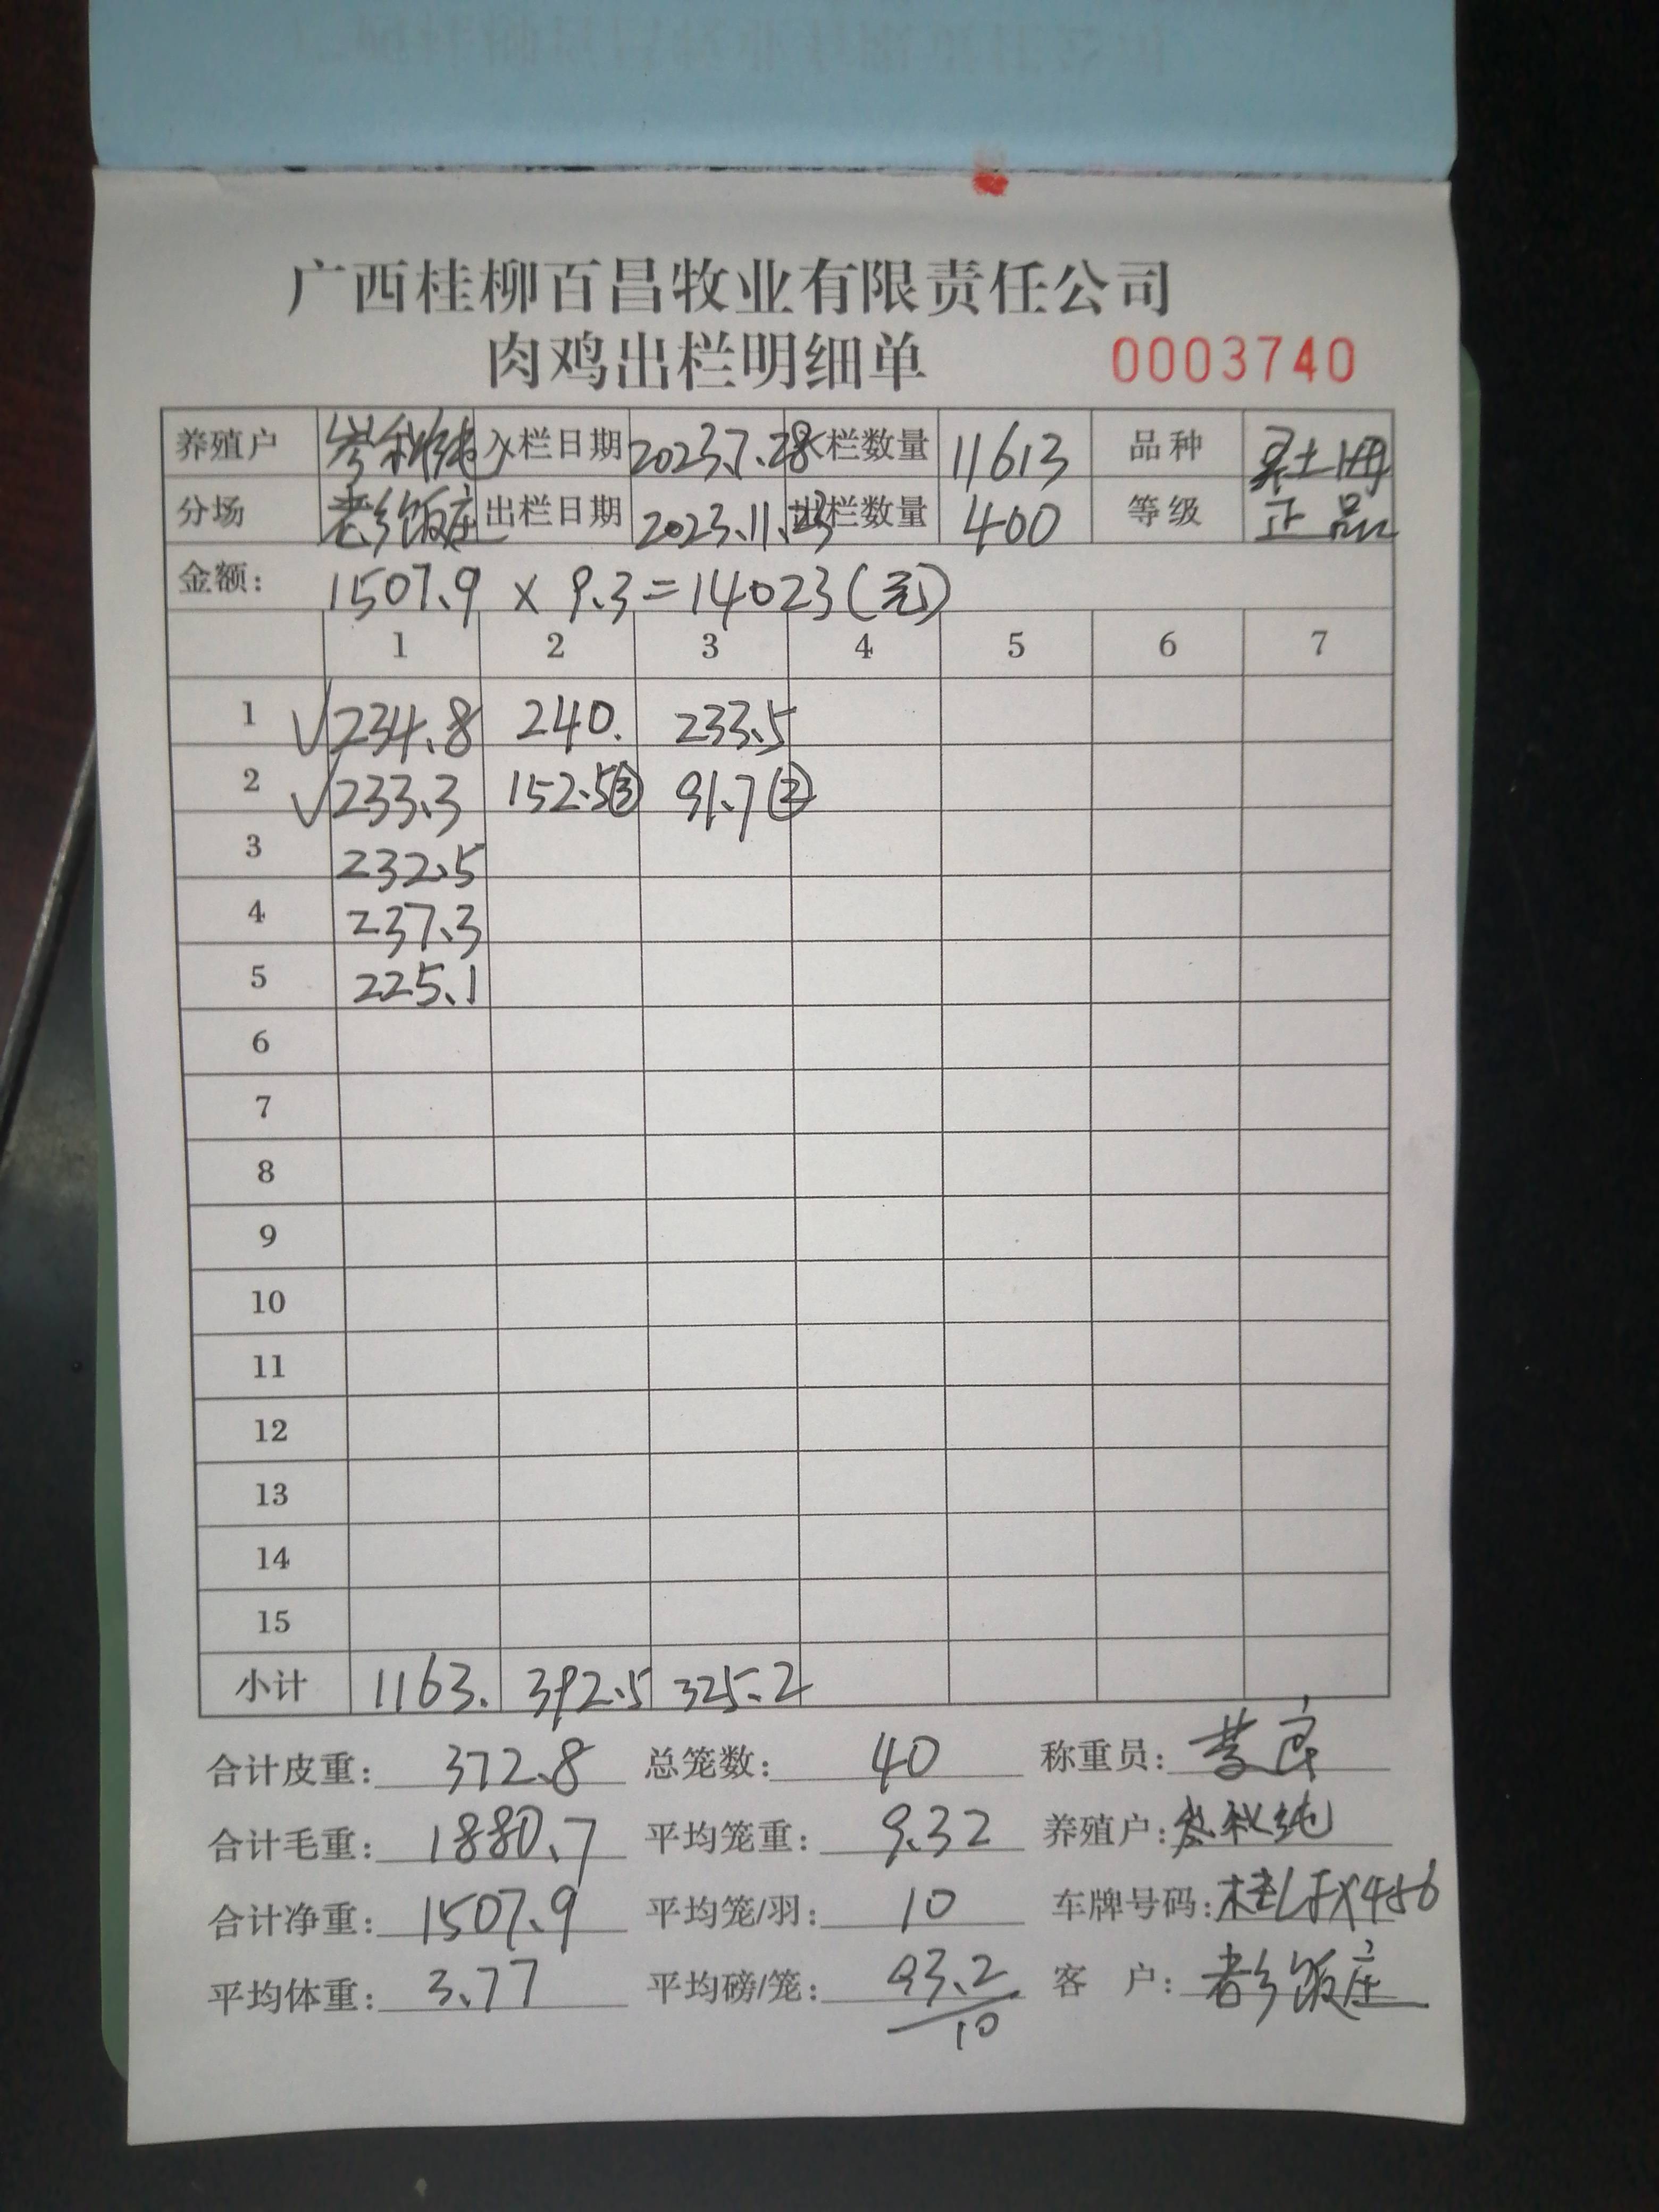 广西桂柳百昌牧业有限责任公司
肉鸡出栏明细单 0003740
养殖户 岑秋纯 入栏日期 2023.7.28 入栏数量 11613 品种
分场 老乡饭庄 出栏日期 2023.11.23 出栏数量 400 等级 正品
金额: 1507.9 × 9.3=14023(元)
1 2 3 4 5 6 7
1 √234.8 240. 233.5
2 √233.3 152.5③ 91.7②
3 232.5
4 237.3
5 225.1
6
7
8
9
10
11
12
13
14
15
小计 1163. 392.5 325.2
合计皮重: 372.8 总笼数: 40 称重员:
合计毛重: 1880.7 平均笼重: 9.32 养殖户: 岑秋纯
合计净重: 1507.9 平均笼/羽: 10 车牌号码:
平均体重: 3.77 平均磅/笼: 93.2 客 户: 老乡饭庄
10